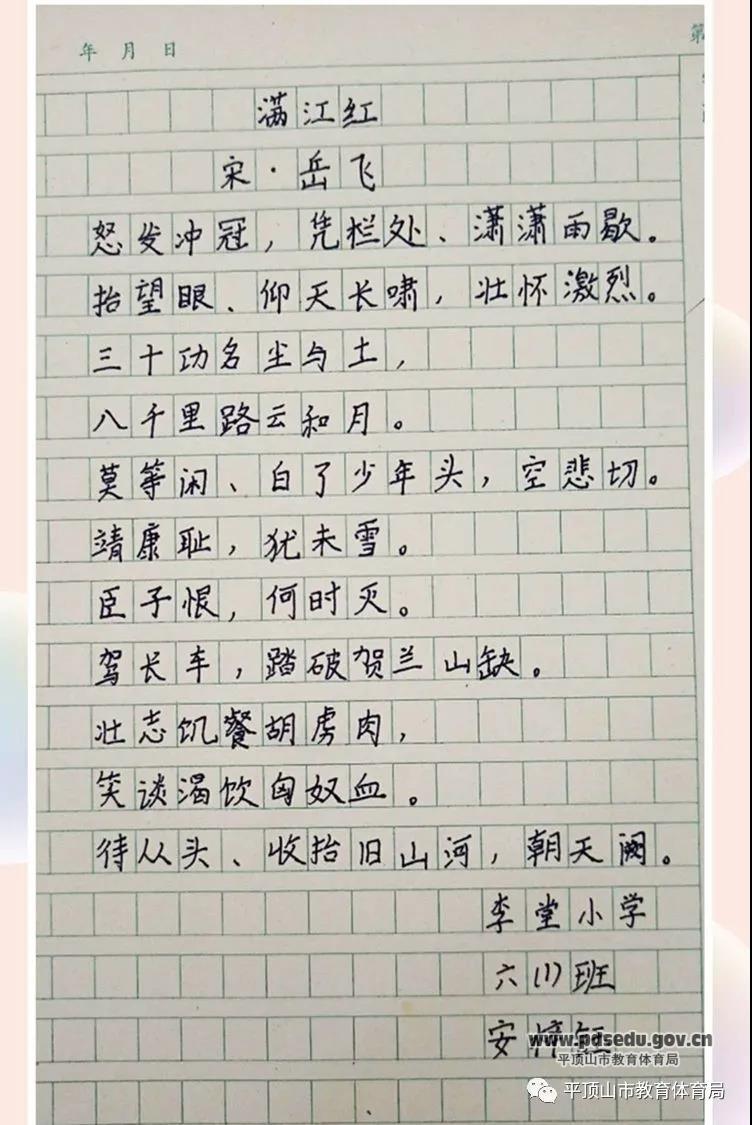 年 月 日
第
满江红
宋·岳飞
怒发冲冠，凭栏处、潇潇雨歇。
抬望眼、仰天长啸，壮怀激烈。
三十功名尘与土，
八千里路云和月。
莫等闲、白了少年头，空悲切。
靖康耻，犹未雪。
臣子恨，何时灭。
驾长车，踏破贺兰山缺。
壮志饥餐胡虏肉，
笑谈渴饮匈奴血。
待从头、收抬旧山河，朝天阙。
李堂小学
六(1)班
安
www.pdsedu.gov.cn
平顶山市教育体育局
平顶山市教育体育局